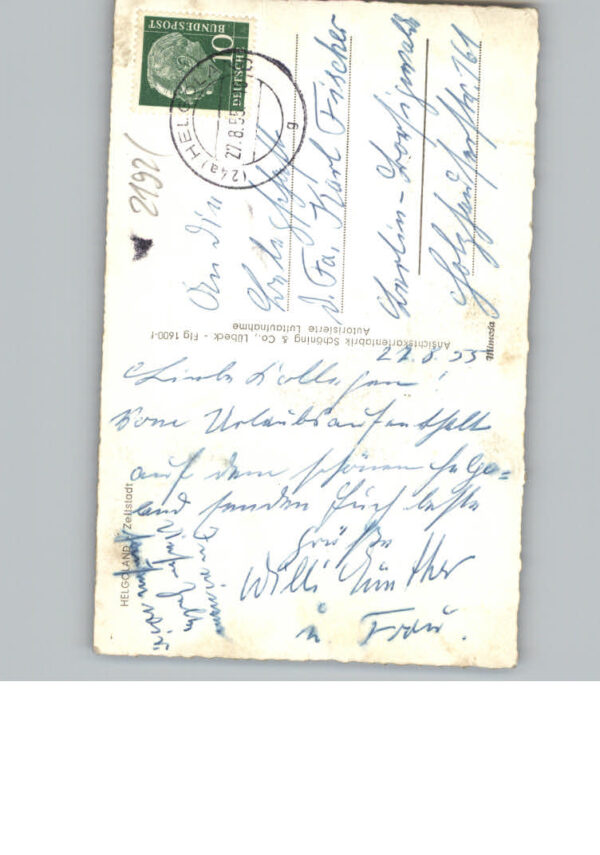 BUNDESPOST
10
DEUTSCHE
(24a) HELGOLAND
27.8.55
g
2192
An die
Belegschaft
d. Fa. Karl Fischer
Berlin-Borsigwalde
Holzhauserstr. 161
Mimosa
Ansichtskartenfabrik Schöning & Co., Lübeck - Flg 1600-f
Autorisierte Luftaufnahme
HELGOLAND / Zeltstadt
27.8.55
Liebe Kollegen!
Vom Urlaubsaufenthalt
auf dem schönen Helgo=
land senden Euch beste
Grüße
Willi Günther
u. Frau.